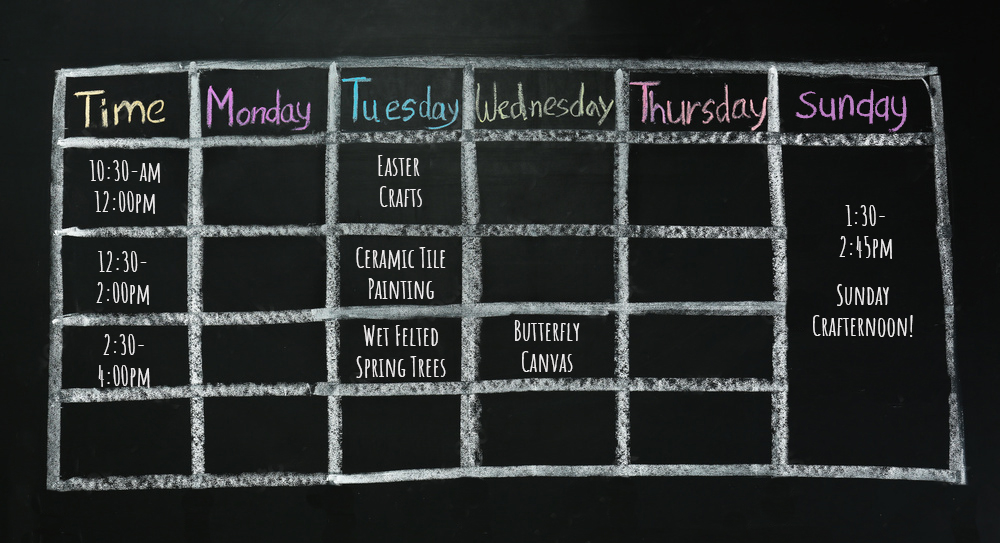 Time Monday Tuesday Wednesday Thursday Sunday
10:30-AM
12:00PM
Easter
Crafts
12:30-
2:00PM
Ceramic Tile
Painting
2:30-
4:00PM
Wet Felted
Spring Trees
Butterfly
Canvas
1:30-
2:45PM
Sunday
Crafternoon!